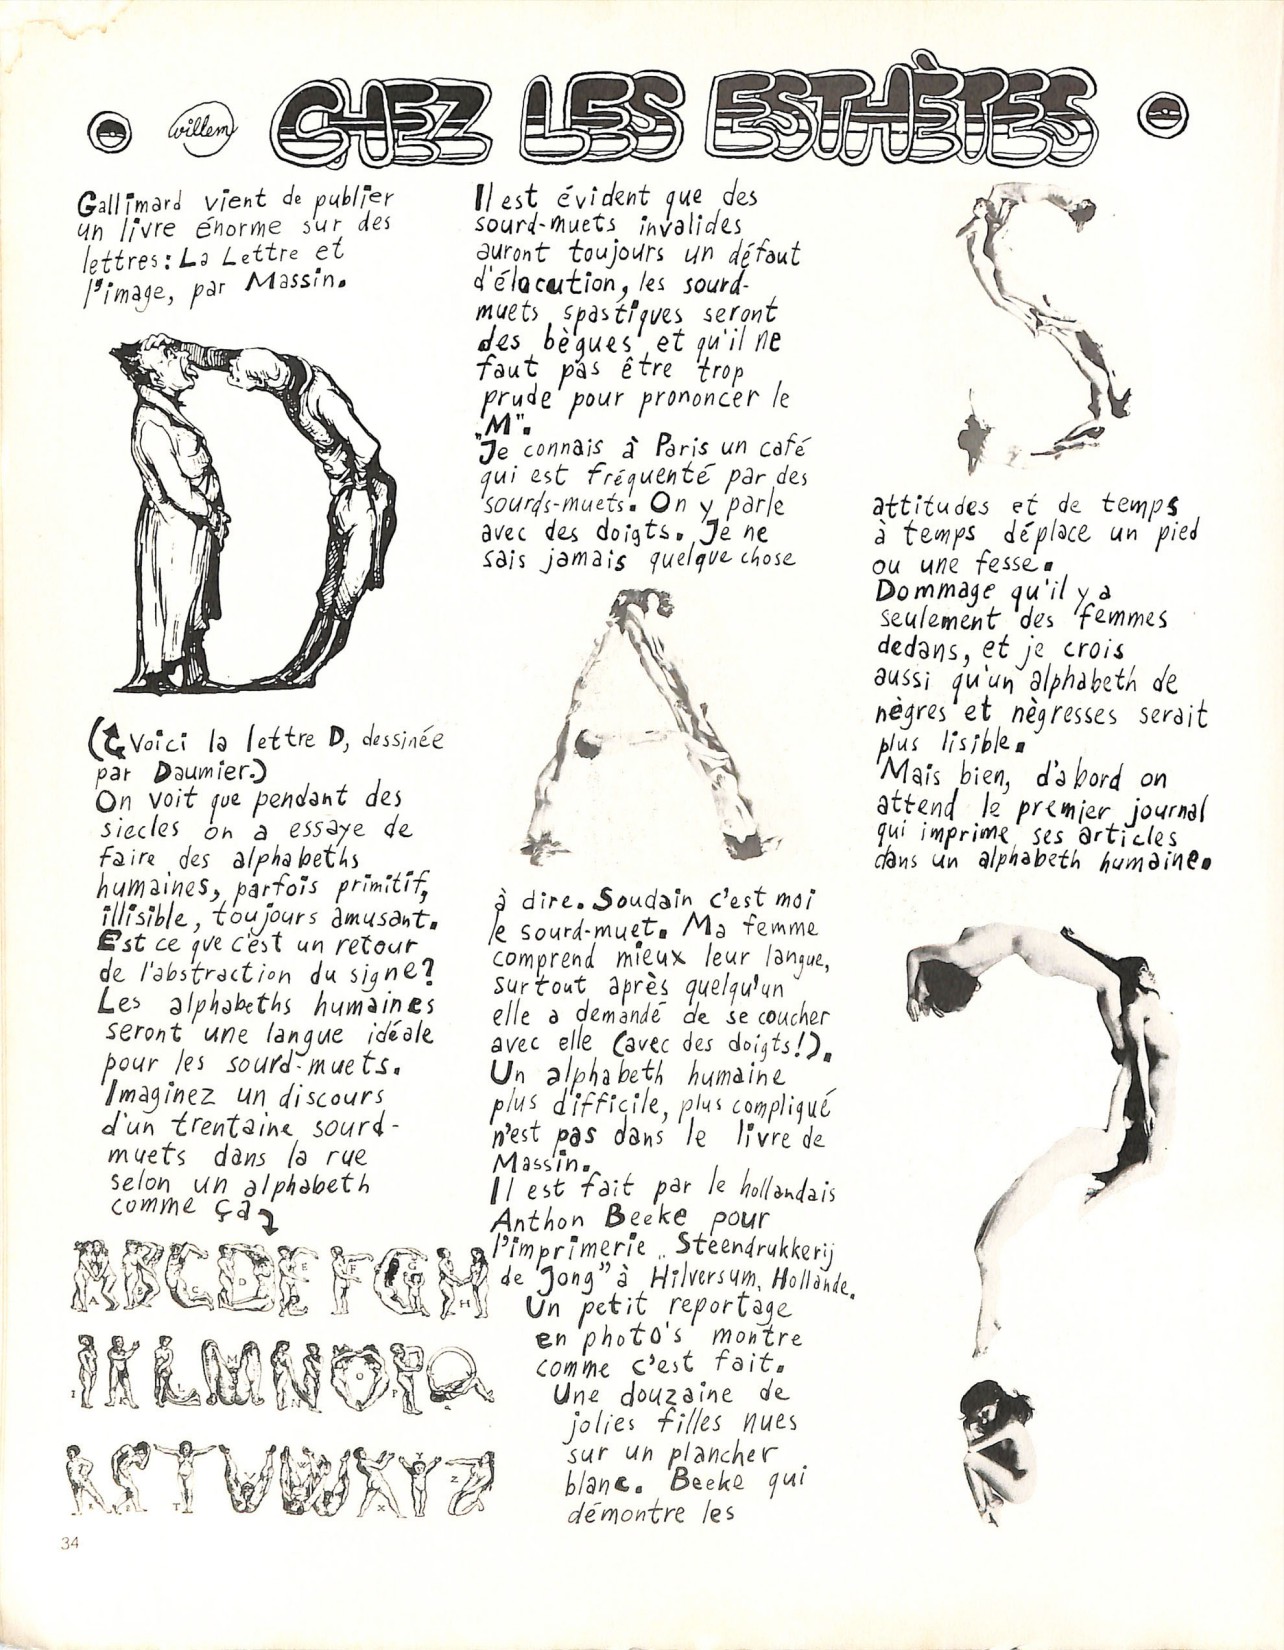 willem
CHEZ LES ESTHÈTES
Gallimard vient de publier
un livre énorme sur des
lettres: La Lettre et
l'image, par Massin.
(Voici la lettre D, dessinée
par Daumier.)
On voit que pendant des
siecles on a essaye de
faire des alphabeths
humaines, parfois primitif,
illisible, toujours amusant.
Est ce que c'est un retour
de l'abstraction du signe?
Les alphabeths humaines
seront une langue idéale
pour les sourd-muets.
Imaginez un discours
d'un trentaine sourd-
muets dans la rue
selon un alphabeth
comme ça
ABCDEFGH
IKLMNOPQ
RSTVWXYZ
Il est évident que des
sourd-muets invalides
auront toujours un défaut
d'élocution, les sourd-
muets spastiques seront
des bègues et qu'il ne
faut pas être trop
prude pour prononcer le
"M".
Je connais à Paris un café
qui est fréquenté par des
sourds-muets. On y parle
avec des doigts. Je ne
sais jamais quelque chose
A
à dire. Soudain c'est moi
le sourd-muet. Ma femme
comprend mieux leur langue,
surtout après quelqu'un
elle a demandé de se coucher
avec elle (avec des doigts!).
Un alphabeth humaine
plus difficile, plus compliqué
n'est pas dans le livre de
Massin.
Il est fait par le hollandais
Anthon Beeke pour
l'imprimerie „Steendrukkerij
de Jong" à Hilversum, Hollande.
Un petit reportage
en photo's montre
comme c'est fait.
Une douzaine de
jolies filles nues
sur un plancher
blanc. Beeke qui
démontre les
S
attitudes et de temps
à temps déplace un pied
ou une fesse.
Dommage qu'il y a
seulement des femmes
dedans, et je crois
aussi qu'un alphabeth de
nègres et nègresses serait
plus lisible.
Mais bien, d'abord on
attend le premier journal
qui imprime ses articles
dans un alphabeth humaine.
?
34